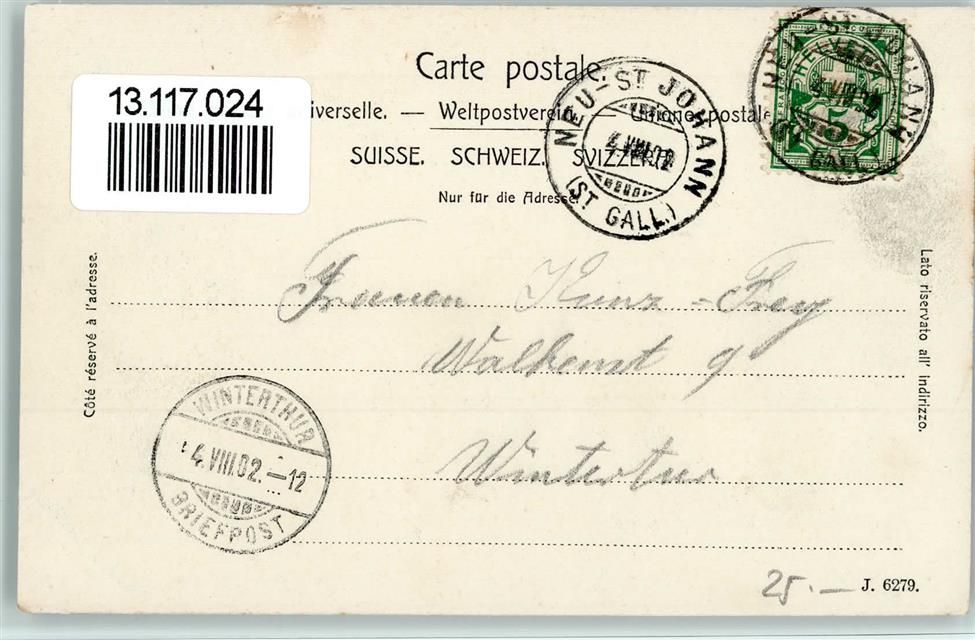 Carte postale.
13.117.024
iverselle. — Weltpostverein — Unione postale
SUISSE. SCHWEIZ. SVIZZERA.
Nur für die Adresse
NEU-ST JOHANN
4.VIII.02
(ST GALL.)
HELVETIA
5
Côté réservé à l'adresse.
Lato riservato all' indirizzo.
Frauen Kunz-Frey
9
Wintertur
WINTERTHUR
4.VIII.02.-12
BRIEFPOST
25.—
J. 6279.